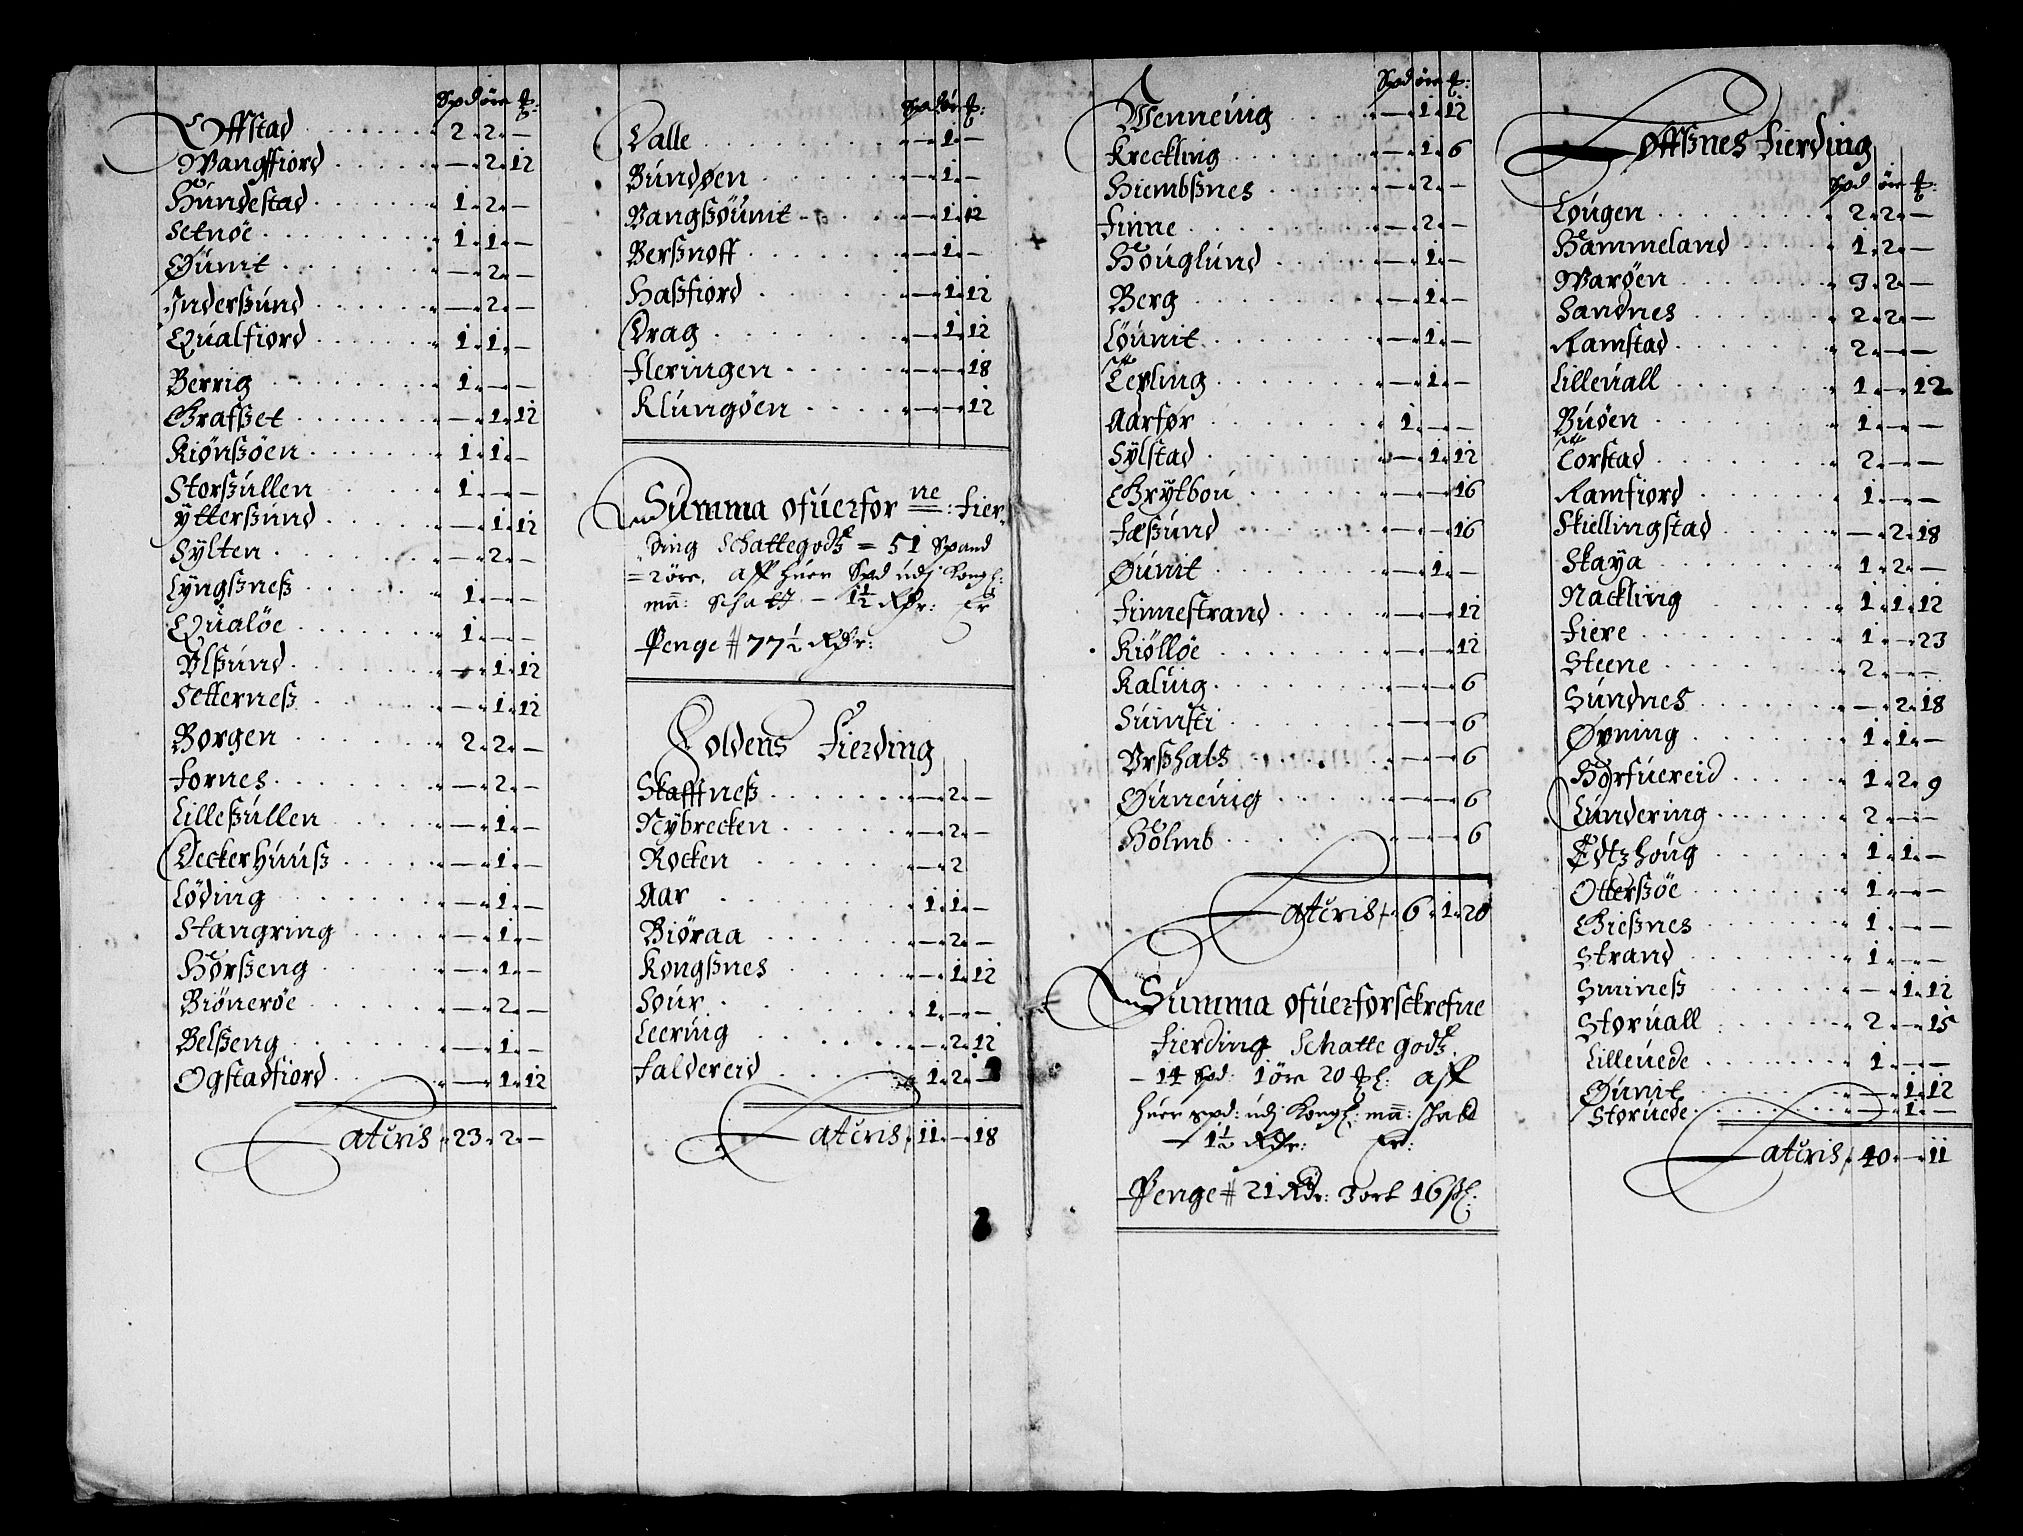 Spd øre ℔:
Offstad 2 2 —
Wangffiord — 2 12
Hundestad 1 2 —
Setnøe 1 1 —
Øunit — 2 —
Inderßund — 2 —
Qualfiord 1 1 —
Berrig 1 — —
Grafset — 1 12
Kiønßøen 1 1 —
Storßullen 1 — —
Ytterßund — 1 12
Sylten — 2 —
Lyngßneß 1 — —
Qualøe 1 — —
Ulßund — 1 12
Setterneß — 1 12
Borgen 2 2 —
Fornes — 2 —
Lilleßullen — 1 —
Deckerhuuß — 1 —
Løding — 1 —
Stangring — 1 —
Hørßeng — 1 —
Biønerøe — 2 —
Belßeng — 1 —
Ogstadfiord — 1 12
Latcris 23 2 —
Spd ør ℔:
Dalle — 1 —
Bundøen — 1 —
Vangßøunit — 1 12
Berßnoff — 1 —
Haßfiord — 1 12
Drag — 1 12
Fleringen — — 18
Klungøen — — 12
Summa ofuerfor ne: Fier-
ding Schattegodtz = 51 Spand
= 2 øre, aff huer Spd udj Kongl:
Maÿ: Schatt — 1½ Rdr: er
Penge # 77½ Rdr:
Foldens Fierding
Skafffneß — 2 —
Nybrecken — 2 —
Rocken — 2
Aar 1 1 —
Biøraa — 2 —
Kongßnes — 1 12
Sour 1 — —
Leeruig — 2 12
Faldereid 1 2 —
Latcris 11 — 18
Spd øre ℔:
Wenneuig — 1 12
Kreckling — 1 6
Hiembßnes — 2 —
Finne — 2 —
Houglund — 1 —
Berg — 1 —
Løunit — 1 —
Terling — 1 —
Aarfor 1 — —
Sylstad — 1 12
Grytbou — — 16
Fæßund — — 16
Øunit — 1 —
Finnestrand — — 12
Kiølløe — — 12
Kaluig — — 6
Suinsti — — 6
Urßhals — — 6
Øuneuig — — 6
Holmb — — 6
Latcris 6 1 20
Summa ofuerforsckrefne
Fierding Schatte godtz
— 14 Spd: 1 øre 20 ℔l: aff
huer spd: udj Kongl: Maÿ: schatt
— 1½ Rdr: Er:
Penge # 21 Rdr: 3 ort 16 ßl:
Øffßnes Fierding
Spd øre ℔:
Lougen 2 2 —
Hammeland 1 2 —
Warøen 3 2 —
Sandnes 2 2 —
Ramstad 2 — —
Lilleuall 1 — 12
Buøen 1 — —
Torstad 2 — —
Ramfiord 1 — —
Skiellingstad — 2 18
Skaga 1 2 —
Nackling 1 1 12
Fiere 1 — 23
Steene 2 — —
Sundnes — 2 18
Øyning 1 1 —
Horfuereid 1 2 9
Lundering 2 — —
Edtzhoug 1 1 —
Otterßøe 1 — —
Gießnes 1 — —
Strand 1 — —
Suineß — 1 12
Storuall 2 — 15
Lilleuede 1 — —
Øunit — 1 12
Storuede — 1 —
Latcris 40 — 11